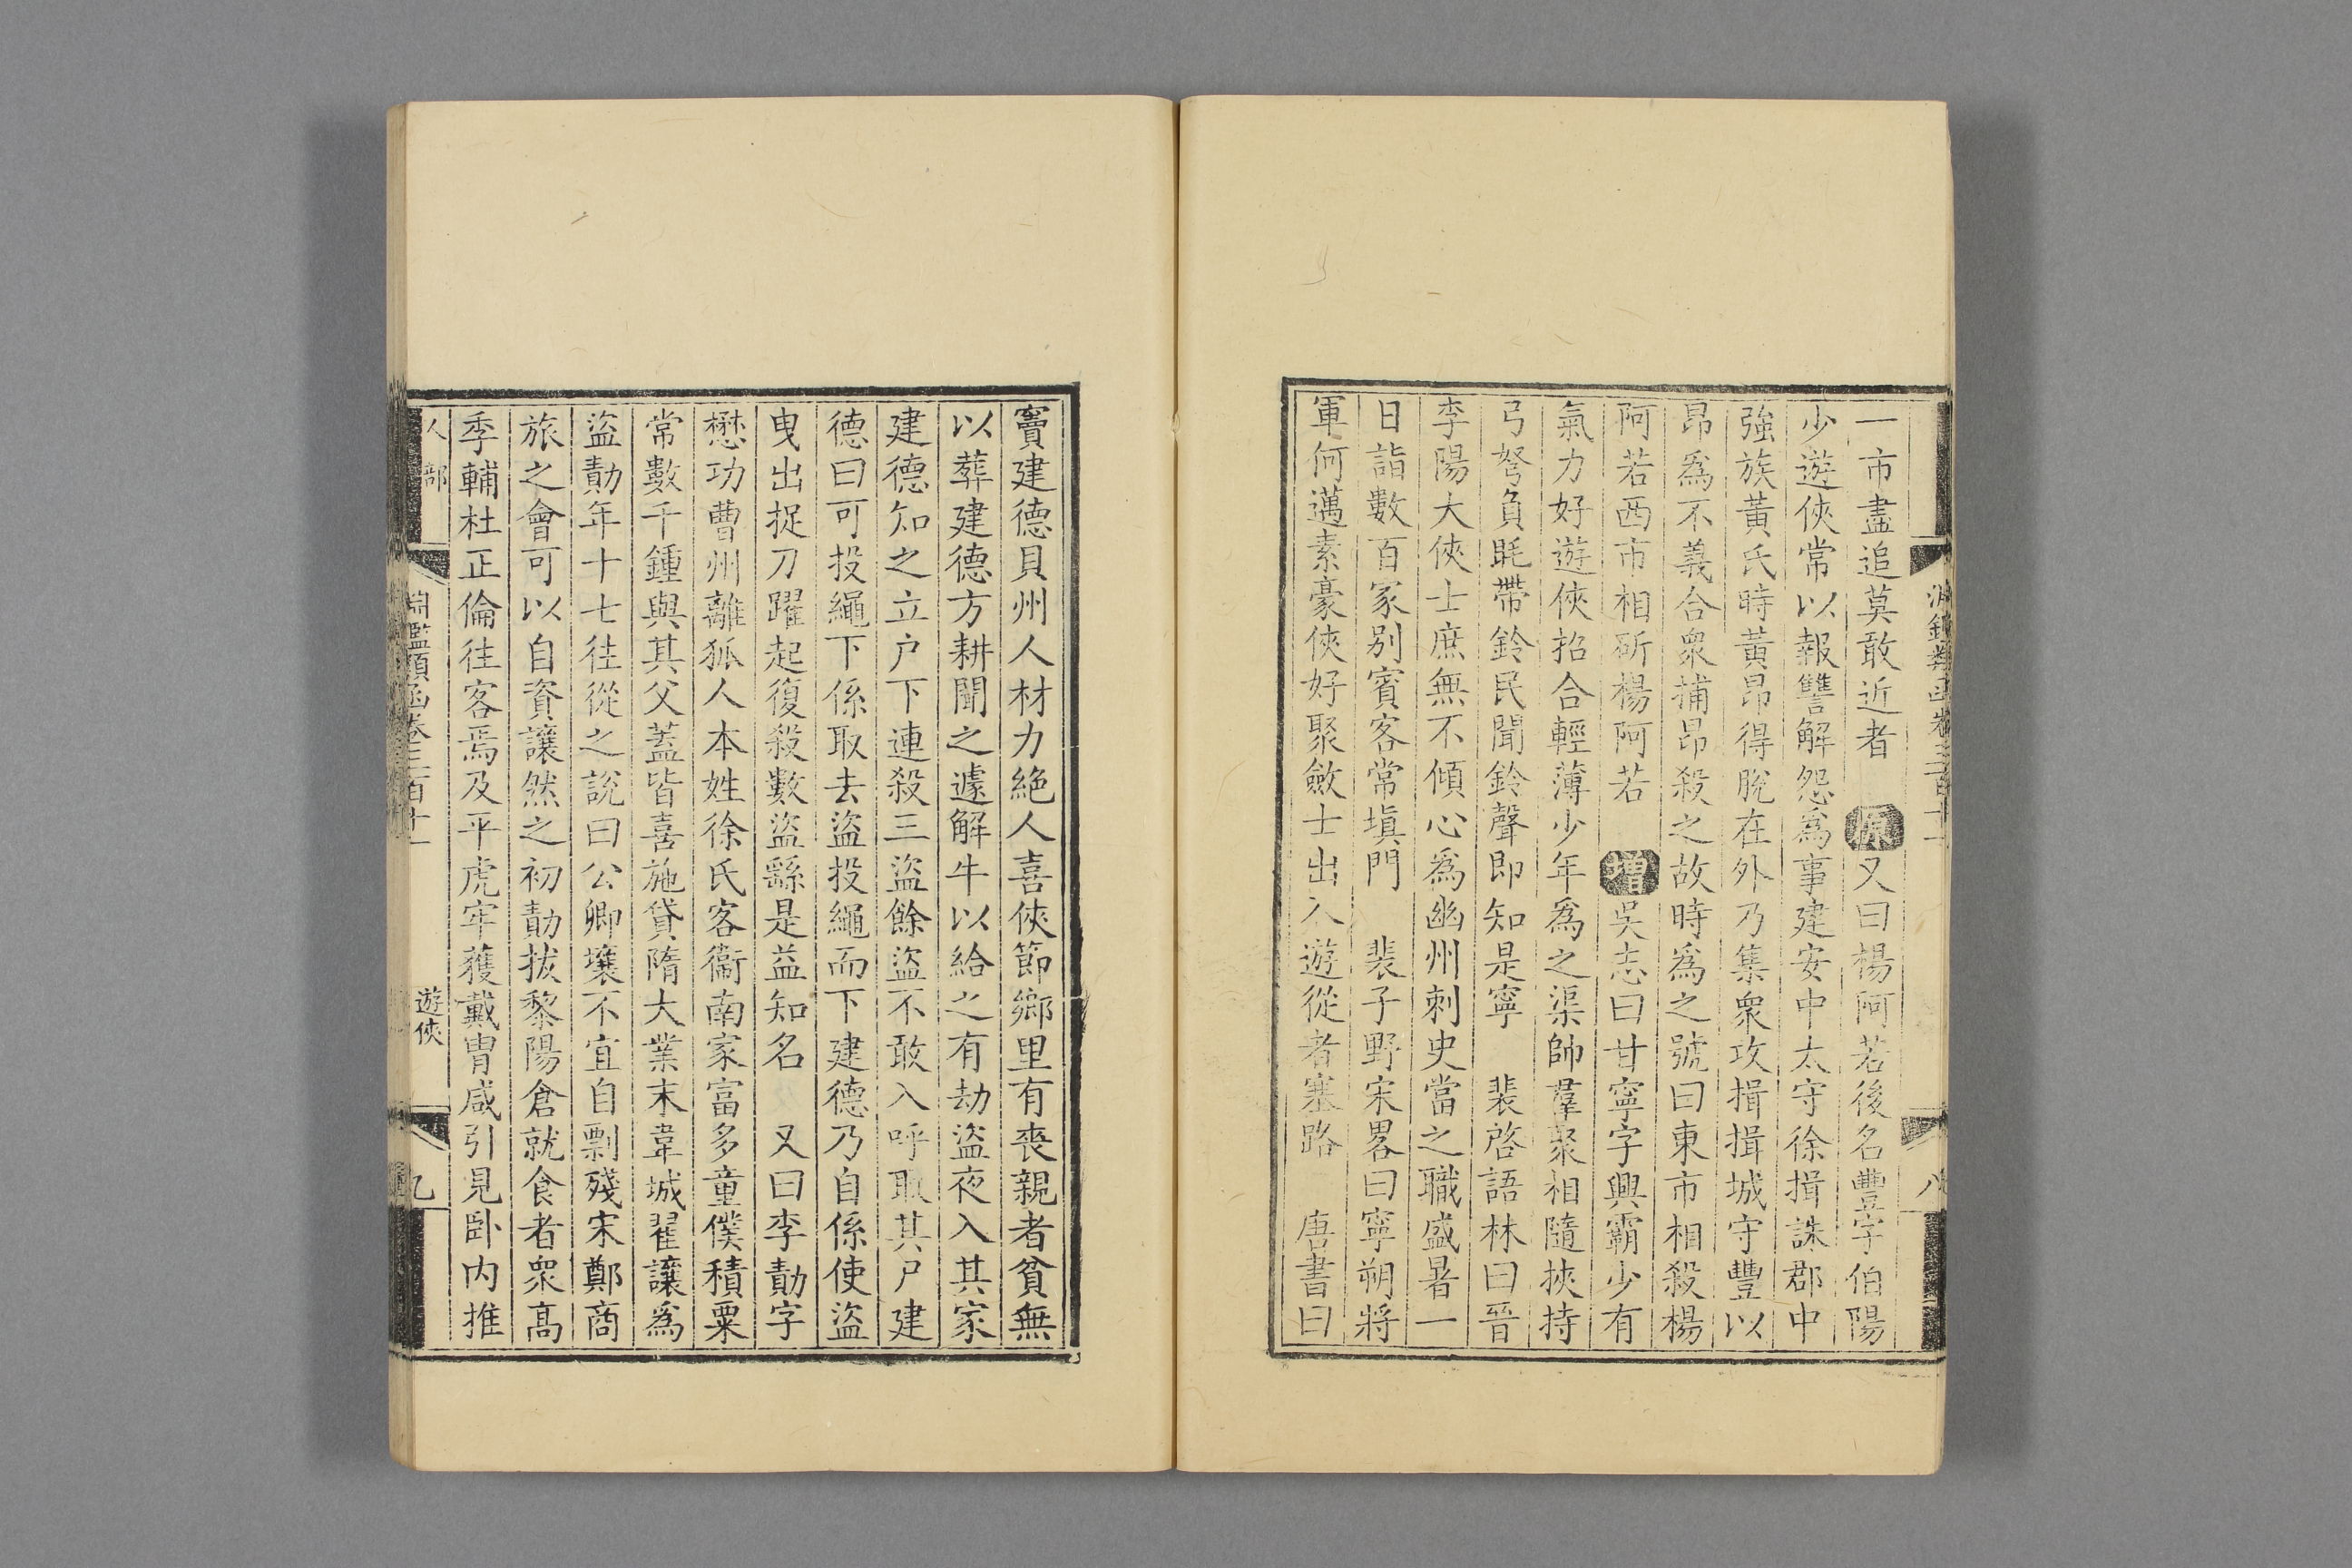 一市盡追莫敢近者　源又曰楊阿若後名豐字伯陽
少遊俠常以報讐解怨爲事建安中太守徐揖誅郡中
強族黃氏時黃昂得脫在外乃集衆攻揖揖城守豐以
昂爲不義合衆捕昂殺之故時爲之號曰東市相殺楊
阿若西市相斫楊阿若　增吳志曰甘寧字興霸少有
氣力好遊俠招合輕薄少年爲之渠帥羣聚相隨挾持
弓弩負毦帶鈴民聞鈴聲即知是寧　裴啓語林曰晉
李陽大俠士庶無不傾心爲幽州刺史當之職盛暑一
日詣數百家別賓客常塡門　裴子野宋畧曰寧朔將
軍何邁素豪俠好聚斂士出入遊從者塞路　唐書曰
淵鑑類函卷三百十一
八
竇建德貝州人材力絶人喜俠節鄉里有喪親者貧無
以葬建德方耕聞之遽解牛以給之有劫盜夜入其家
建德知之立户下連殺三盜餘盜不敢入呼取其尸建
德曰可投繩下係取去盜投繩而下建德乃自係使盜
曳出捉刀躍起復殺數盜繇是益知名　又曰李勣字
懋功曹州離狐人本姓徐氏客衞南家富多童僕積粟
常數千鍾與其父蓋皆喜施貸隋大業末韋城翟讓爲
盜勣年十七往從之說曰公卿壤不宜自剽殘宋鄭商
旅之會可以自資讓然之初勣拔黎陽倉就食者衆高
季輔杜正倫往客焉及平虎牢獲戴胄咸引見卧内推
人部
淵鑑類函卷三百十一
遊俠
九